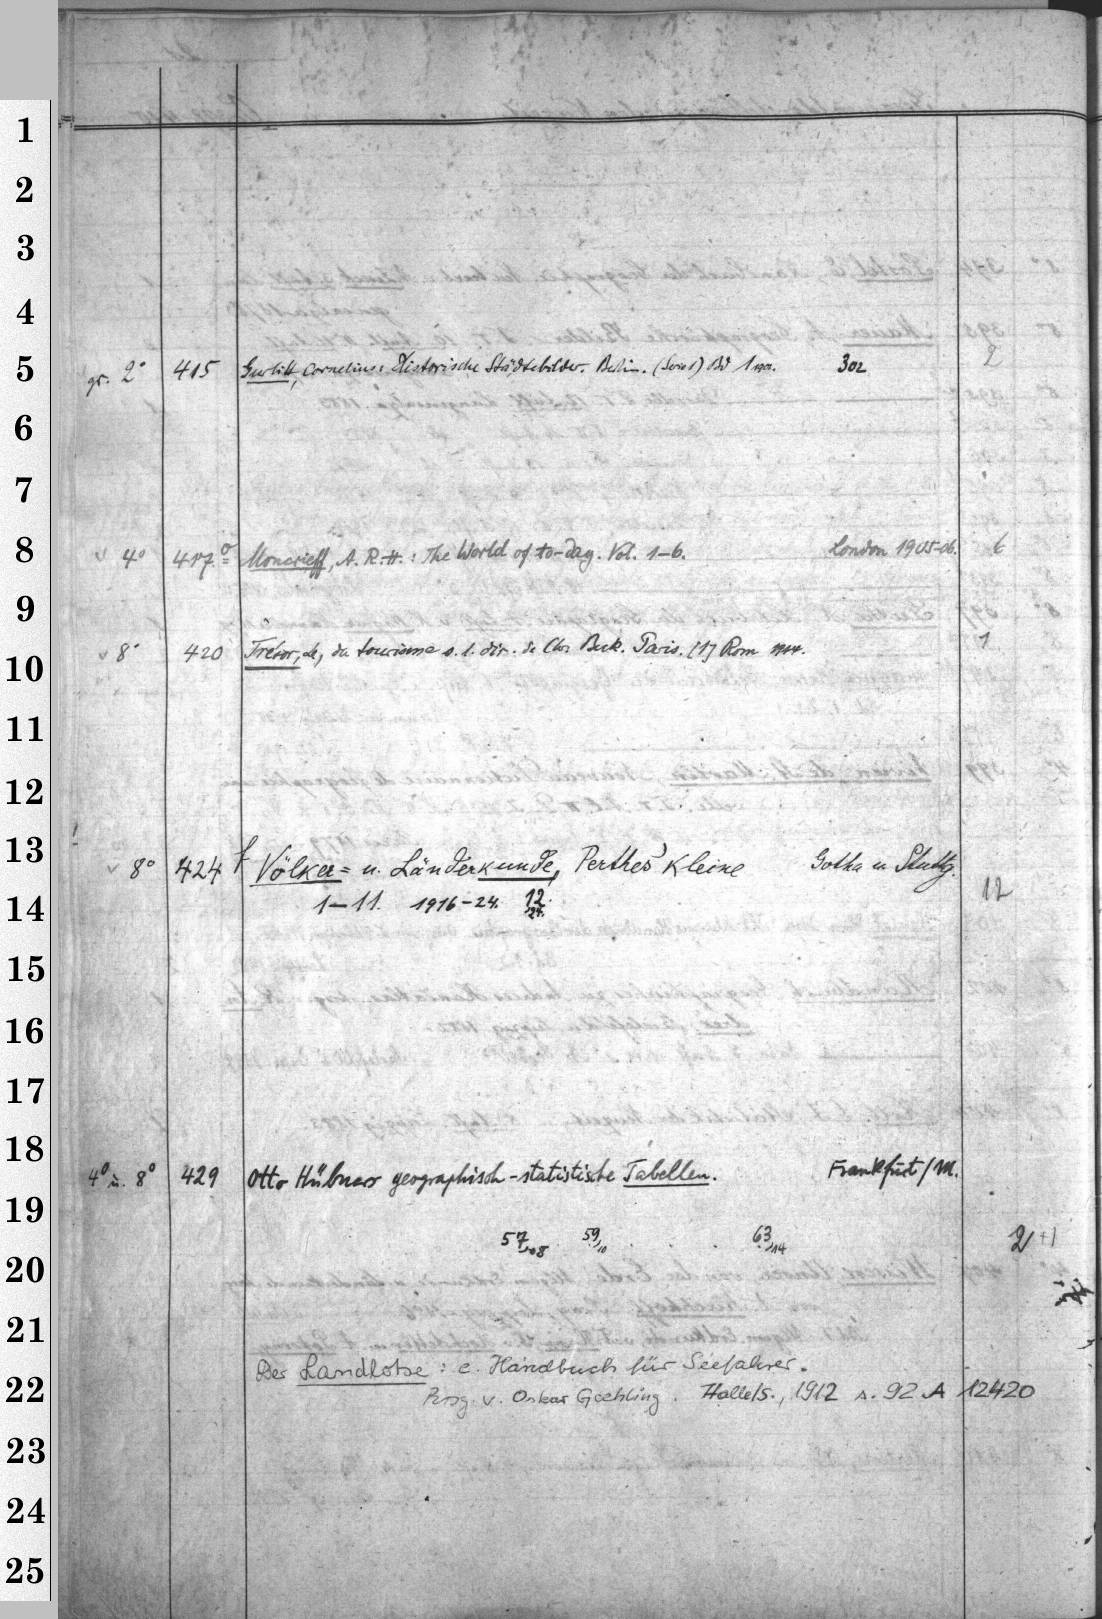 1
2
3
4
5 gr. 2° 415 Gurlitt, Cornelius: Historische Städtebilder. Berlin. (Serie 1) Bd 1 1901. 302 2
6
7
8 v 4° 417 a Moncrieff, A. R. H.: The World of to-day. Vol. 1-6. London 1905-06. 6
9
10 v 8° 420 Trésor, le, du tourisme s. l. dir. de Paris. [1] Rom 1914. 1
11
12
13 v 8° 424 f Völker= u. Länderkunde, Perthes' Kleine Gotha u Stuttg.
14 1-11. 1916-24. 12. 24. 12
15
16
17
18 4° u. 8° 429 Otto Hübners geographisch-statistische Tabellen. Frankfurt/M.
19 57,08 59,10 . . 63,14 2 +1
20
21
22 Der Landlotse: e. Handbuch für Seefahrer.
Hrsg. v. Oskar Goehling. Halle/S., 1912 s. 92 A 12420
23
24
25